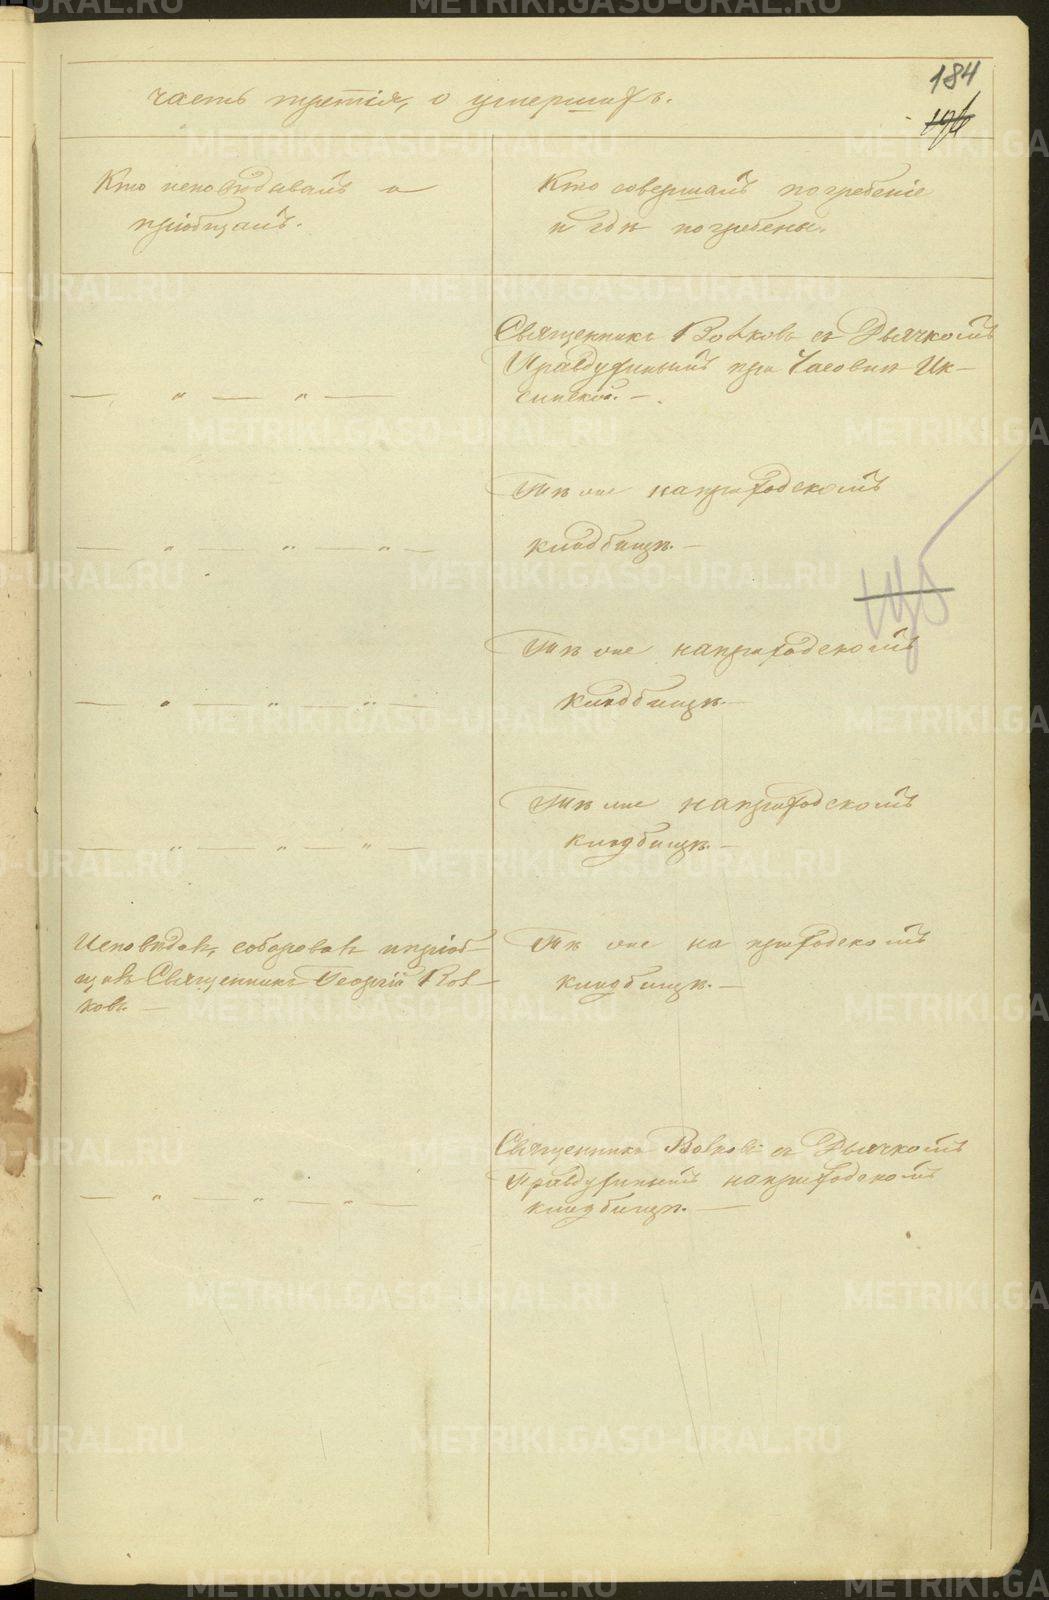 184
часть третія, о умершихъ.
Кто исповѣдывалъ и
пріобщалъ.
Кто совершалъ погребеніе
и гдѣ погребены.
Священникъ Вовковъ съ Дьячкомъ
Правдухинымъ при Часовнѣ Ик-
синской. —
— „ — „ —
Тѣ же на приходскомъ
— „ — „ — „ —
кладбищѣ. —
Тѣ же на приходскомъ
— „ — „ — „ —
кладбищѣ. —
Тѣ же на приходскомъ
— „ — „ — „ —
кладбищѣ. —
Исповѣдавъ, соборовавъ и пріоб-
щавъ Священникъ Георгій Вов-
ковъ. —
Тѣ же на приходскомъ
кладбищѣ. —
Священникъ Вовковъ съ Дьячкомъ
Правдухинымъ на приходскомъ
кладбищѣ. —
— „ — „ — „ —
METRIKI.GASO-URAL.RU